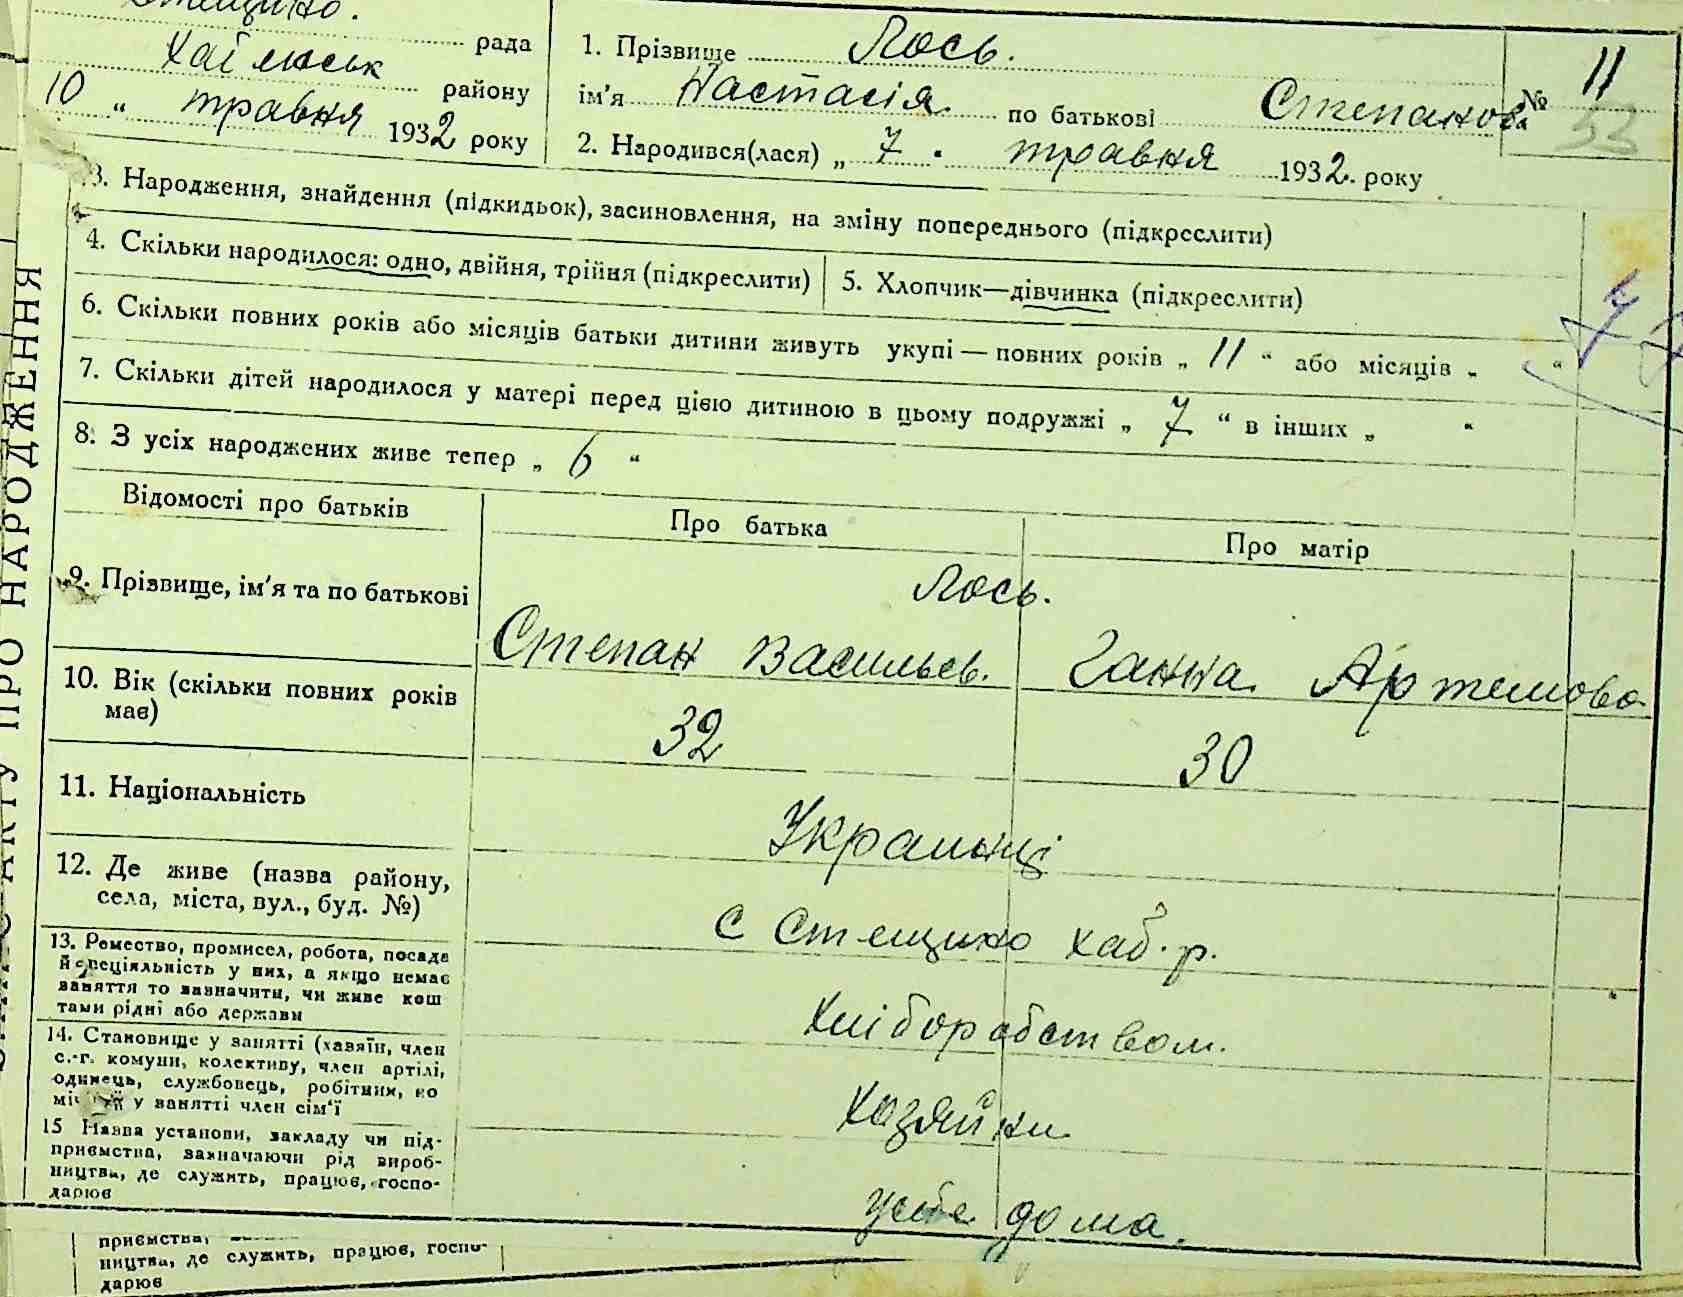 Стещино.
рада
району
10 " травня 1932 року
1. Прізвище Лось.
ім'я Настасія по батькові Степанова
№ 11
53
2. Народився(лася) „ 7 " травня 1932. року
3. Народження, знайдення (підкидьок), засиновлення, на зміну попереднього (підкреслити)
4. Скільки народилося: одно, двійня, трійня (підкреслити)
5. Хлопчик—дівчинка (підкреслити)
6. Скільки повних років або місяців батьки дитини живуть укупі — повних років „ 11 “ або місяців „ “
7. Скільки дітей народилося у матері перед цією дитиною в цьому подружжі „ 7 “ в інших „ “
8. З усіх народжених живе тепер „ 6 “
Відомості про батьків
Про батька
Про матір
9. Прізвище, ім'я та по батькові
Лось.
Степан Васильев.
Ганна Артемова
10. Вік (скільки повних років має)
32
30
11. Національність
Украинці
12. Де живе (назва району,
села, міста, вул., буд. №)
с Стещино хаб. р.
13. Ремество, промисел, робота, посада
й спеціяльність у них, а якщо немає
заняття то зазначити, чи живе кош
тами рідні або держави
Хліборобством.
14. Становище у занятті (хазяїн, член
с.-г. комуни, колективу, член артілі,
одинець, службовець, робітник, по
у занятті член сім'ї
Хозяйни
15 Назва установи, закладу чи під-
приємства, зазначаючи рід вироб-
ництва, де служить, працює, госпо-
дарює
дома.
приємства,
ництва, де служить, працює, госпо-
дарює
ПРО НАРОДЖЕННЯ